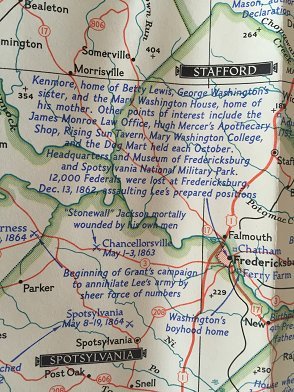 Bealeton
17
Mason, author
Declaration
264
806
Somerville
404
mington
Morrisville
STAFFORD
354
Kenmore, home of Betty Lewis, George Washington's
sister, and the Mary Washington House, home of
his mother. Other points of interest include the
James Monroe Law Office, Hugh Mercer's Apothecary
Shop, Rising Sun Tavern, Mary Washington College,
and the Dog Mart held each October.
Headquarters and Museum of Fredericksburg
and Spotsylvania National Military Park.
12,000 Federals were lost at Fredericksburg,
Dec. 13, 1862, assaulting Lee's prepared positions
Staff
17
1
"Stonewall" Jackson mortally
wounded by his own men
erness
1864
Chancellorsville
May 1-3, 1863
Falmouth
Chatham
Fredericksburg
Ferry Farm
3
Beginning of Grant's campaign
to annihilate Lee's army by
sheer force of numbers
Parker
229
208
Washington's
boyhood home
New
Spotsylvania
May 8-19, 1864
Spotsylvania
SPOTSYLVANIA
Ni
Po
Post Oak
Snell
208
1